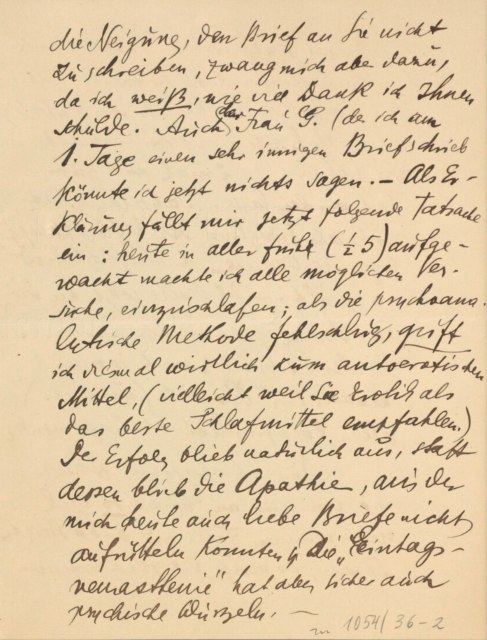 die Neigung, den Brief an Sie nicht
zu schreiben, zwang mich aber dazu,
da ich weiß, wie viel Dank ich Ihnen
schulde. Auch der Frau G. (der ich am
1. Tage einen sehr innigen Brief schrieb
könnte ich jetzt nichts sagen. – Als Er-
klärung fällt mir jetzt folgende Tatsache
ein: heute in aller früh (½ 5) aufge-
wacht machte ich alle möglichen Ver-
suche, einzuschlafen; als die psychoana-
lytische Methode fehlschlug, griff
ich diesmal wirklich zum autoerotischen
Mittel, (vielleicht weil Sie Erotik als
das beste Schlafmittel empfahlen.)
Der Erfolg blieb natürlich aus, statt
dessen blieb die Apathie, aus der
mich heute auch liebe Briefe nicht
aufrütteln konnten. Die „Eintags-
neurasthenie“ hat aber sicher auch
psychische Wurzeln. –
1054/36-2